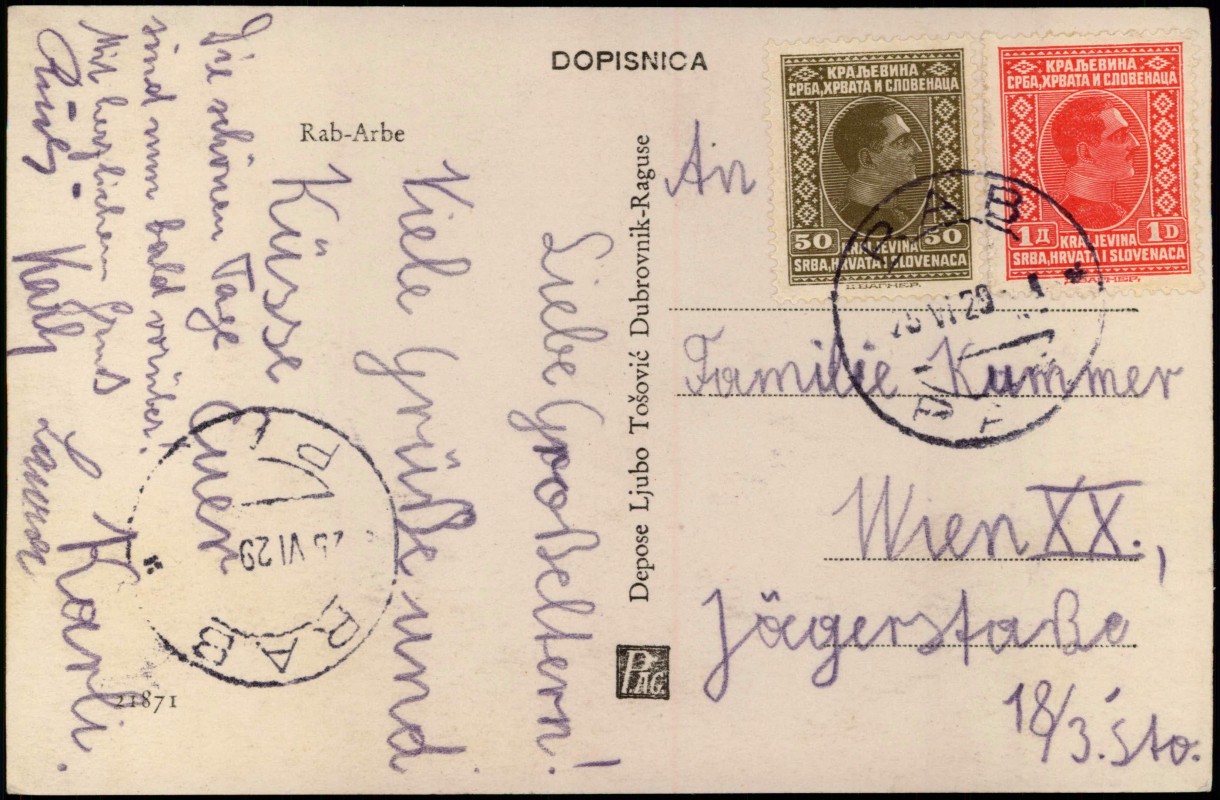 DOPISNICA
Rab-Arbe
Liebe Großeltern!
Viele Grüße und
Küsse Euer
Karli.
Die schönen Tage
sind nun bald vorüber!
Mit herzlichem Gruß
21871
Depose Ljubo Tošović Dubrovnik-Raguse
PAG.
КРАЉЕВИНА
СРБА, ХРВАТА И СЛОВЕНАЦА
50 50
KRALJEVINA
SRBA, HRVATA I SLOVENACA
КРАЉЕВИНА
СРБА, ХРВАТА И СЛОВЕНАЦА
1Д 1D
KRALJEVINA
SRBA, HRVATA I SLOVENACA
RAB
25 VI 29
РАБ
RAB
25 VI 29
An
Familie Kummer
Wien XX.,
Jägerstaße
18/3. Sto.